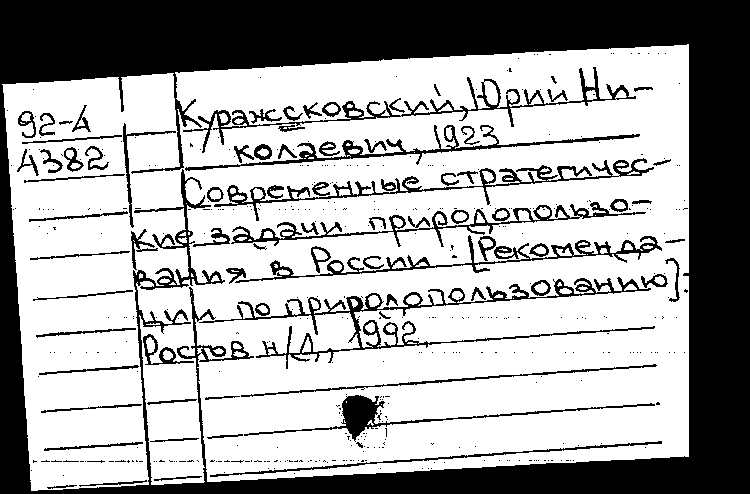 92-4
4382
Куражссковский, Юрий Ни-
колаевич, 1923
Современные стратегичес-
кие задачи природопользо-
вания в России : [Рекоменда-
ции по природопользованию].
Ростов н/Д,, 1992.